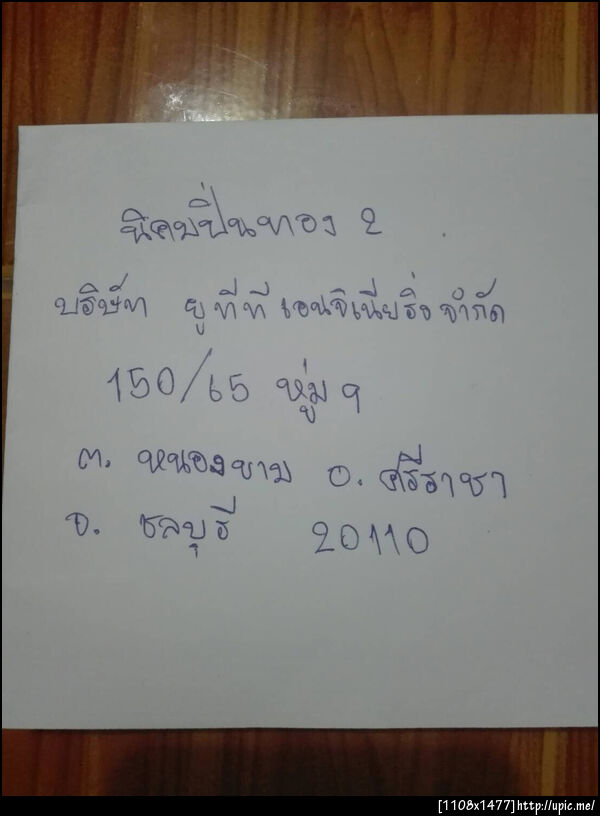 นิคมปิ่นทอง 2
บริษัท ยูทีที เอนจิเนียริ่ง จำกัด
150/65 หมู่ 9
ต. หนองขาม อ. ศรีราชา
จ. ชลบุรี 20110
[1108x1477]http://upic.me/